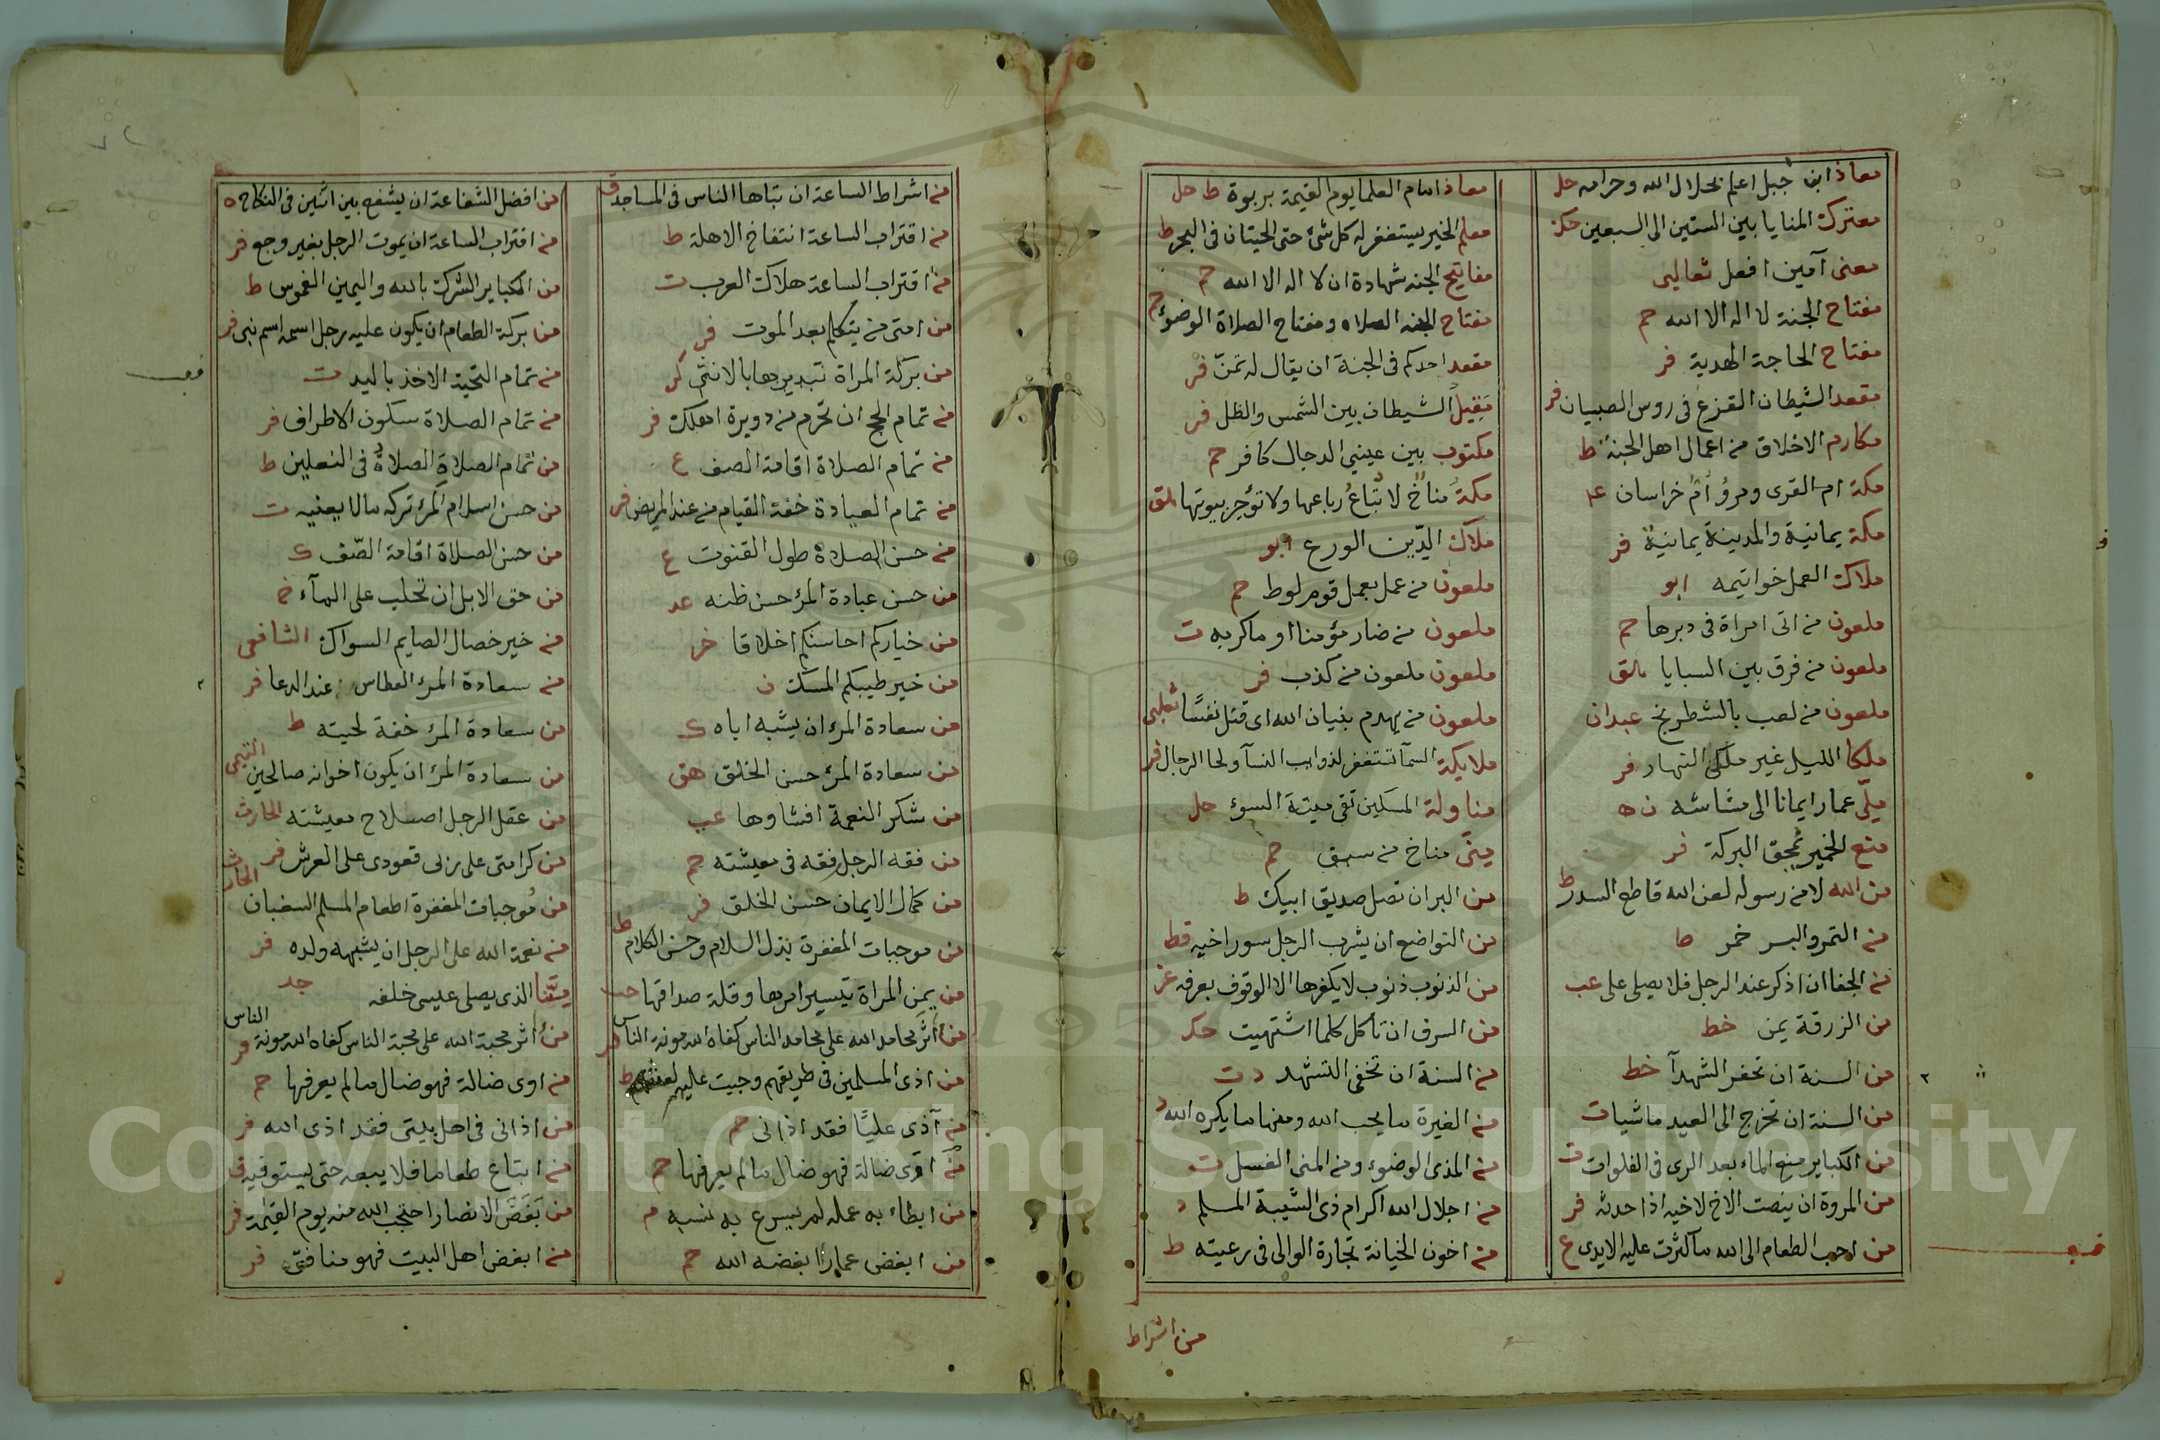 معاذ ابن جبل اعلم بحلال الله وحرامه حل
معترك المنايا بين الستين الى السبعين حكه
معنى آمين افعل ثعالبى
مفتاح الجنة لا اله الا الله حم
مفتاح الحاجة الهدية فر
مقعد الشيطان القزع فى روس الصبيان فر
مكارم الاخلاق من اعمال اهل الجنة ط
مكة ام القرى ومرو ام خراسان عد
مكة يمانية والمدينة يمانية فر
ملاك العمل خواتيمه ابو
ملعون من اتى امراة فى دبرها حم
ملعون من فرق بين السبايا هق
ملعون من لعب بالشطرنج عبدان
ملكا الليل غير ملكى النهار فر
ملى عمار ايمانا الى مشاشه ن ه
منع الخمير يمحق البركة فر
من الله لا من رسوله لعن الله قاطع السدر ط
من التمر والبسر خمر
من الجفا ان اذكر عند الرجل فلا يصلى على عب
من الزرقة يمن خط
من السنة ان تحفر الشهدآ خط
من السنة ان تخرج الى العيد ماشيا ت
من الكباير منع الماء بعد الرى فى الفلوات ت
من المروة ان ينصت الاخ لاخيه اذا حدثه فر
من احب الطعام الى الله ما كثرت عليه الايدى ع
معاذ امام العلما يوم القيمة بربوة ط حل
معلم الخير يستغفر له كل شئ حتى الحيتان فى البحر ط
مفاتيح الجنه شهادة ان لا اله الا الله حم
مفتاح الجنه الصلاه ومفتاح الصلاة الوضوء حم
مقعد احدكم فى الجنة ان يقال له تمن فر
مقيل الشيطان بين الشمس والظل فر
مكتوب بين عينى الدجال كافر حم
مكة مناخ لا تباع رباعها ولا تؤجر بيوتها هق
ملاك الدين الورع ابو
ملعون من عمل بعمل قوم لوط حم
ملعون من ضار مؤمنا او ماكر به ت
ملعون ملعون من كذب فر
ملعون من يهدم بنيان الله اى قتل نفسًا ثعلبى
ملايكة السمآ تستغفر لذوايب النسآ ولحا الرجال فر
مناولة المسكين تقى ميتة السوء حل
منى مناخ من سبق حم
من البر ان تصل صديق ابيك ط
من التواضع ان يشرب الرجل سور اخيه قط
من الذنوب ذنوب لا يكفرها الا الوقوف بعرفه غز
من السرف ان تاكل كلما اشتهيت حكد
من السنة ان تخفى التشهد د ت
من الغيرة ما يحب الله ومنها ما يكره الله د
من المذى الوضوء ومن المنى الغسل ت
من اجلال الله اكرام ذى الشيبة المسلم د
من اخون الخيانة تجارة الوالى فى رعيته ط
من اشراط
من اشراط الساعة ان تباها الناس فى المساجد ق
من اقتراب الساعة انتفاخ الاهلة ط
من اقتراب الساعة هلاك العرب ت
من امتى من يتكلم بعد الموت فر
من بركة المراة تبديرها بالانثى كر
من تمام الحج ان تحرم من دويرة اهلك فر
من تمام الصلاة اقامة الصف ع
من تمام العيادة خفة القيام من عند المريض فر
من حسن الصلاة طول القنوت ع
من حسن عبادة المرء حسن ظنه عد
من خياركم احاسنكم اخلاقا خر
من خير طيبكم المسك ن
من سعادة المرء ان يشبه اباه ك
من سعادة المرء حسن الخلق هق
من شكر النعمة افشاوها عب
من فقه الرجل فقه فى معيشته حم
من كمال الايمان حسن الخلق فر
من موجبات المغفرة بذل السلام وحسن الكلام ط
من يمن المراة تيسير امرها وقلة صداقها حب
من آثر محامد الله على محامد الناس كفاه الله مونة الناس فر
من اذى المسلمين فى طريقهم وجبت عليهم لعنتهم ط
من آذى عليًا فقد اذانى حم
من آوى ضالة فهو ضال ما لم يعرفها حم
من ابطاء به عمله لم يسرع به نسبه م
من ابغض عمارا ابغضه الله حم
من افضل الشفاعة ان يشفع بين اثنين فى النكاح ه
من اقتراب الساعة ان يموت الرجل بغير وجع فر
من الكباير الشرك بالله واليمين الغموس ط
من بركة الطعام ان يكون عليه رجل اسمه اسم نبى فر
من تمام التحية الاخذ باليد ت
من تمام الصلاة سكون الاطراف فر
من تمام الصلاة الصلاة فى النعلين ط
من حسن اسلام المرء تركه ما لا يعنيه ت
من حسن الصلاة اقامة الصّف ك
من حق الابل ان تحلب على المآء خ
من خير خصال الصايم السواك الشافعى
من سعادة المرء العطاس عند الدعا فر
من سعادة المرء خفة لحيته ط
من سعادة المرء ان يكون اخوانه صالحين التيمى
من عقل الرجل اصلاح معيشته الحارث
من كرامتى على ربى قعودى على العرش فر
من موجبات المغفرة اطعام المسلم السغبان الحارث
من نعمة الله على الرجل ان يشبهه ولده فر
منّا الذى يصلى عيسى خلفه جد
من آثر محبة الله على محبة الناس كفاه الله مونة الناس فر
من اوى ضالة فهو ضال ما لم يعرفها حم
من اذانى فى اهل بيتى فقد اذى الله فر
من ابتاع طعاما فلا يبعه حتى يستوفيه ق
من بغض الانصار احتجب الله منه يوم القيمة فر
من ابغض اهل البيت فهو منافق فر
Copyright © King Saud University